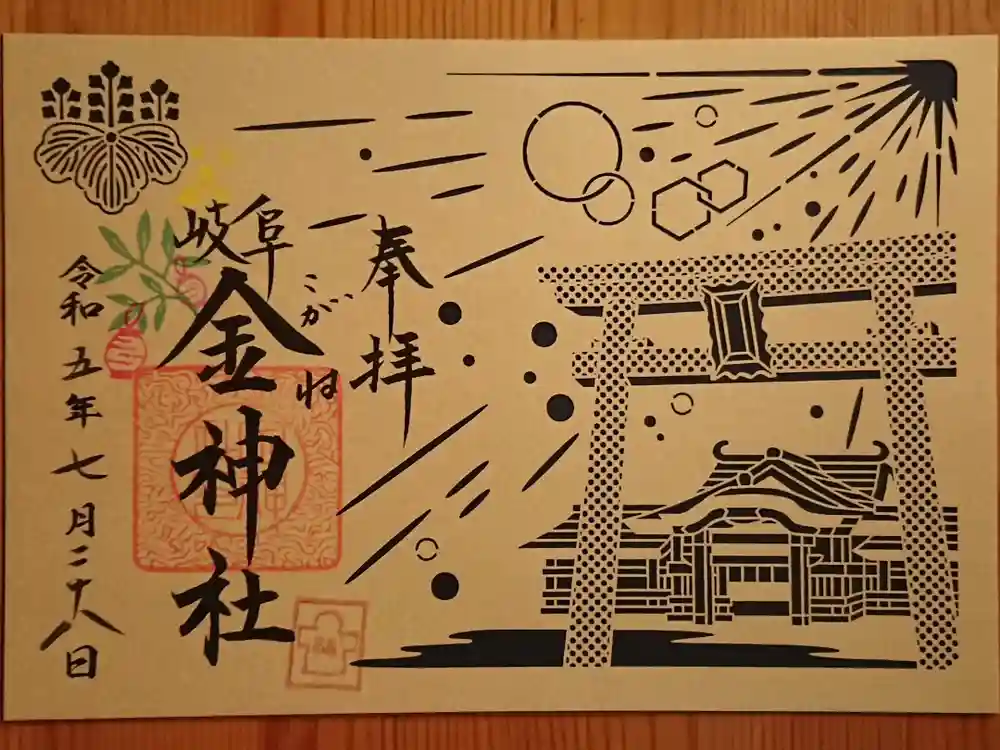 奉拝
こがね
岐阜
金神社
令和五年七月二十八日